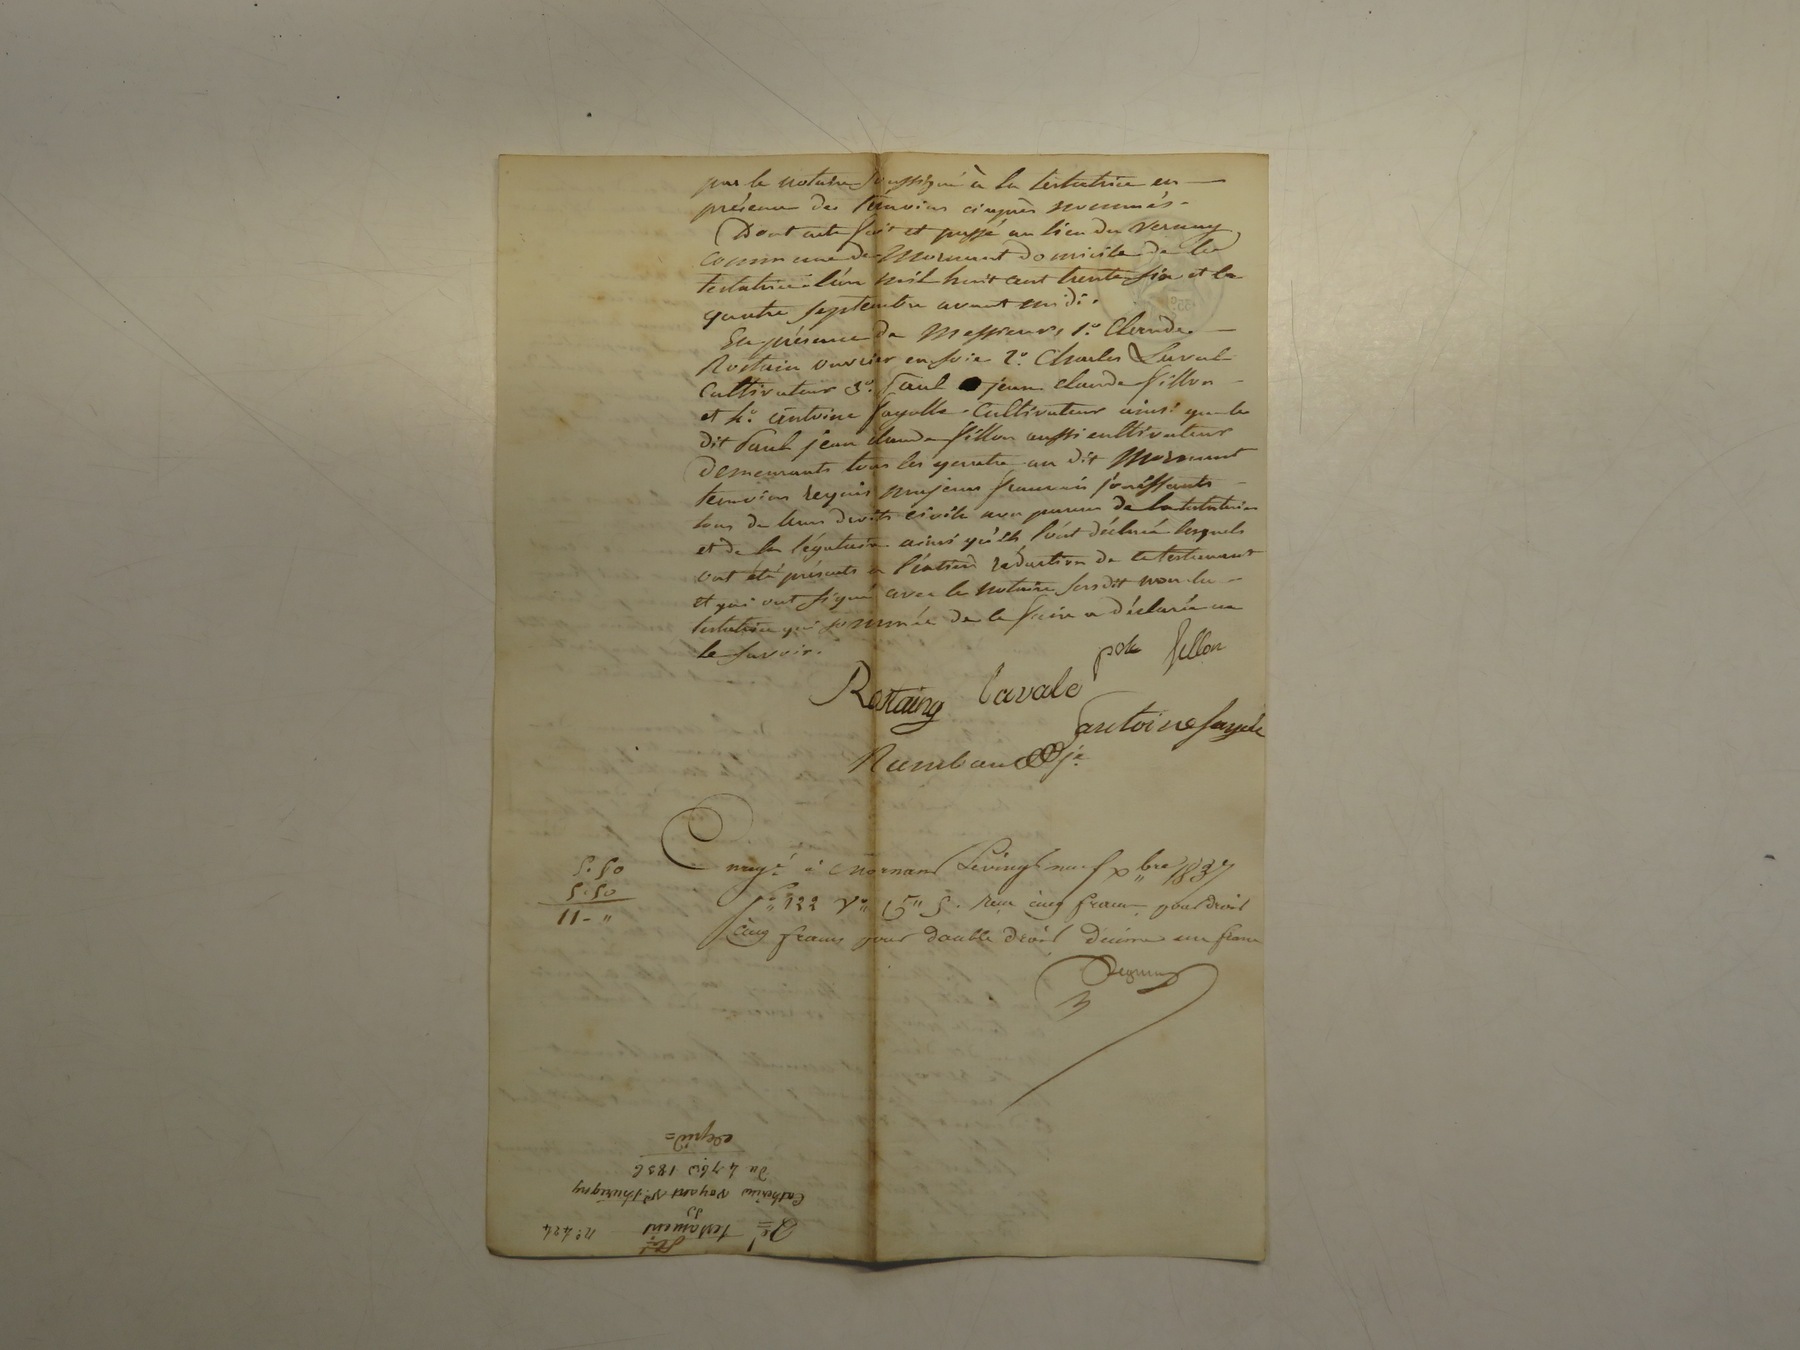 par le notaire soussigné à la testatrice en
présence des témoins ciaprès nommés.
Dont acte fait et passé au lieu du Vernay,
commune de Mornant domicile de la
testatrice l'an mil huit cent trente six et le
quatre septembre avant midi.
En présence de Messieurs, 1.º Claude
Rostain ouvrier en soie 2.º Charles Laval
cultivateur 3.º Paul jean claude fillon
et 4.º antoine fayolle cultivateur ainsi que le
dit Paul jean claude fillon aussi cultivateur
demeurants tous les quatre au dit Mornant
témoins requis majeurs français jouissants
tous de leurs droits civils non parens de la testatrice
et de la légataire ainsi qu'ils l'ont déclaré lesquels
ont été présents à l'entière rédaction de ce testament
et qui ont signé avec le notaire susdit non la
testatrice qui sommée de le faire a déclarée ne
le savoir.
fillon
Rostaing Lavale
antoine fayole
Rambaud je
5.50
5.50
11 - "
Enregé à Mornant le vingt neuf xbre 1837
fº 122 Vº Cº 5. reçu cinq francs pour droit
cinq francs pour double droit décime un franc
nº 424
testament
Catherine Voyant Vve Thurigny
du 4 7bre 1836
expédé